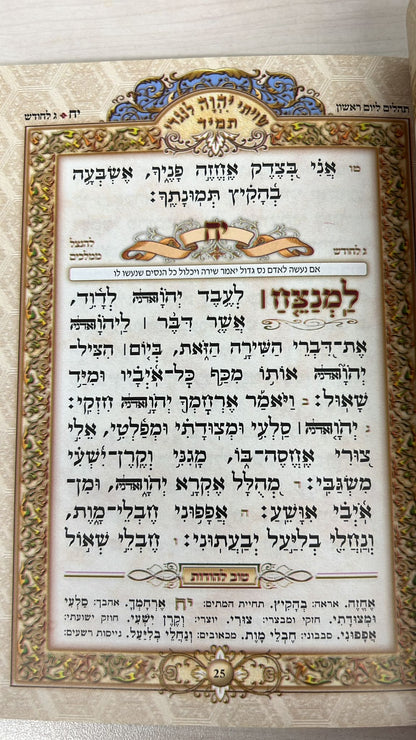 תהלים ליום ראשון
יח ג לחודש
שויתי יהוה לנגדי
תמיד
טו אֲנִי בְּצֶדֶק אֶחֱזֶה פָנֶיךָ, אֶשְׂבְּעָה
בְהָקִיץ תְּמוּנָתֶךָ:
ג לחודש
יח
להנצל
ממלכים
אם נעשה לאדם נס גדול יאמר שירה ויכלול כל הנסים שנעשו לו
לַמְנַצֵּחַ | לְעֶבֶד יְהוָה לְדָוִד,
אֲשֶׁר דִּבֶּר | לַיהוָה
אֶת-דִּבְרֵי הַשִּׁירָה הַזֹּאת, בְּיוֹם | הִצִּיל-
יְהוָה אוֹתוֹ מִכַּף כָּל-אֹיְבָיו וּמִיַּד
שָׁאוּל: ב וַיֹּאמַר אֶרְחָמְךָ יְהוָה חִזְקִי:
ג יְהוָה | סַלְעִי וּמְצוּדָתִי וּמְפַלְטִי, אֵלִי
צוּרִי אֶחֱסֶה-בּוֹ, מָגִנִּי וְקֶרֶן-יִשְׁעִי
מִשְׂגַּבִּי: ד מְהֻלָּל אֶקְרָא יְהוָה, וּמִן-
אֹיְבַי אִוָּשֵׁעַ: ה אֲפָפוּנִי חֶבְלֵי-מָוֶת,
וְנַחֲלֵי בְלִיַּעַל יְבַעֲתוּנִי: ו חֶבְלֵי שְׁאוֹל
טוב להודות
אֶחֱזֶה. אראה: בְהָקִיץ. תחיית המתים: יח אֶרְחָמְךָ. אהבך: סַלְעִי
וּמְצוּדָתִי. חזקי ומבצרי: צוּרִי. יוצרי: וְקֶרֶן יִשְׁעִי. חוזק ישועתי:
אֲפָפוּנִי. סבבוני: חֶבְלֵי מָוֶת. מכאובים: וְנַחֲלֵי בְלִיַּעַל. גייסות רשעים:
25